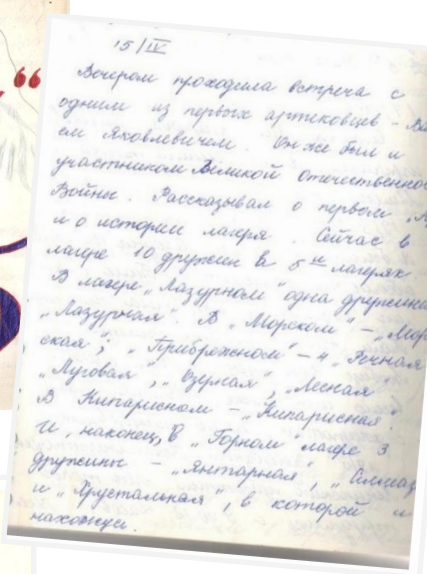 15/IV
Вечером проходила встреча с
одним из первых артековцев -
ем Яковлевичем. Он же был и
участником Великой Отечественно
Войны. Рассказывал о первом
и о истории лагеря. Сейчас в
лагере 10 дружин в 5ти лагерях
В лагере „Лазурном" одна дружина
„Лазурная". В „Морском" – „Мор
ская"; „Прибрежном" – 4 „Речная
„Луговая", „Озерная", „Лесная"
В Кипарисном – „Кипарисная".
И, наконец, в „Горном" лагере 3
дружины – „Янтарная", „Алмаз
и „Хрустальная", в которой и
нахожусь.